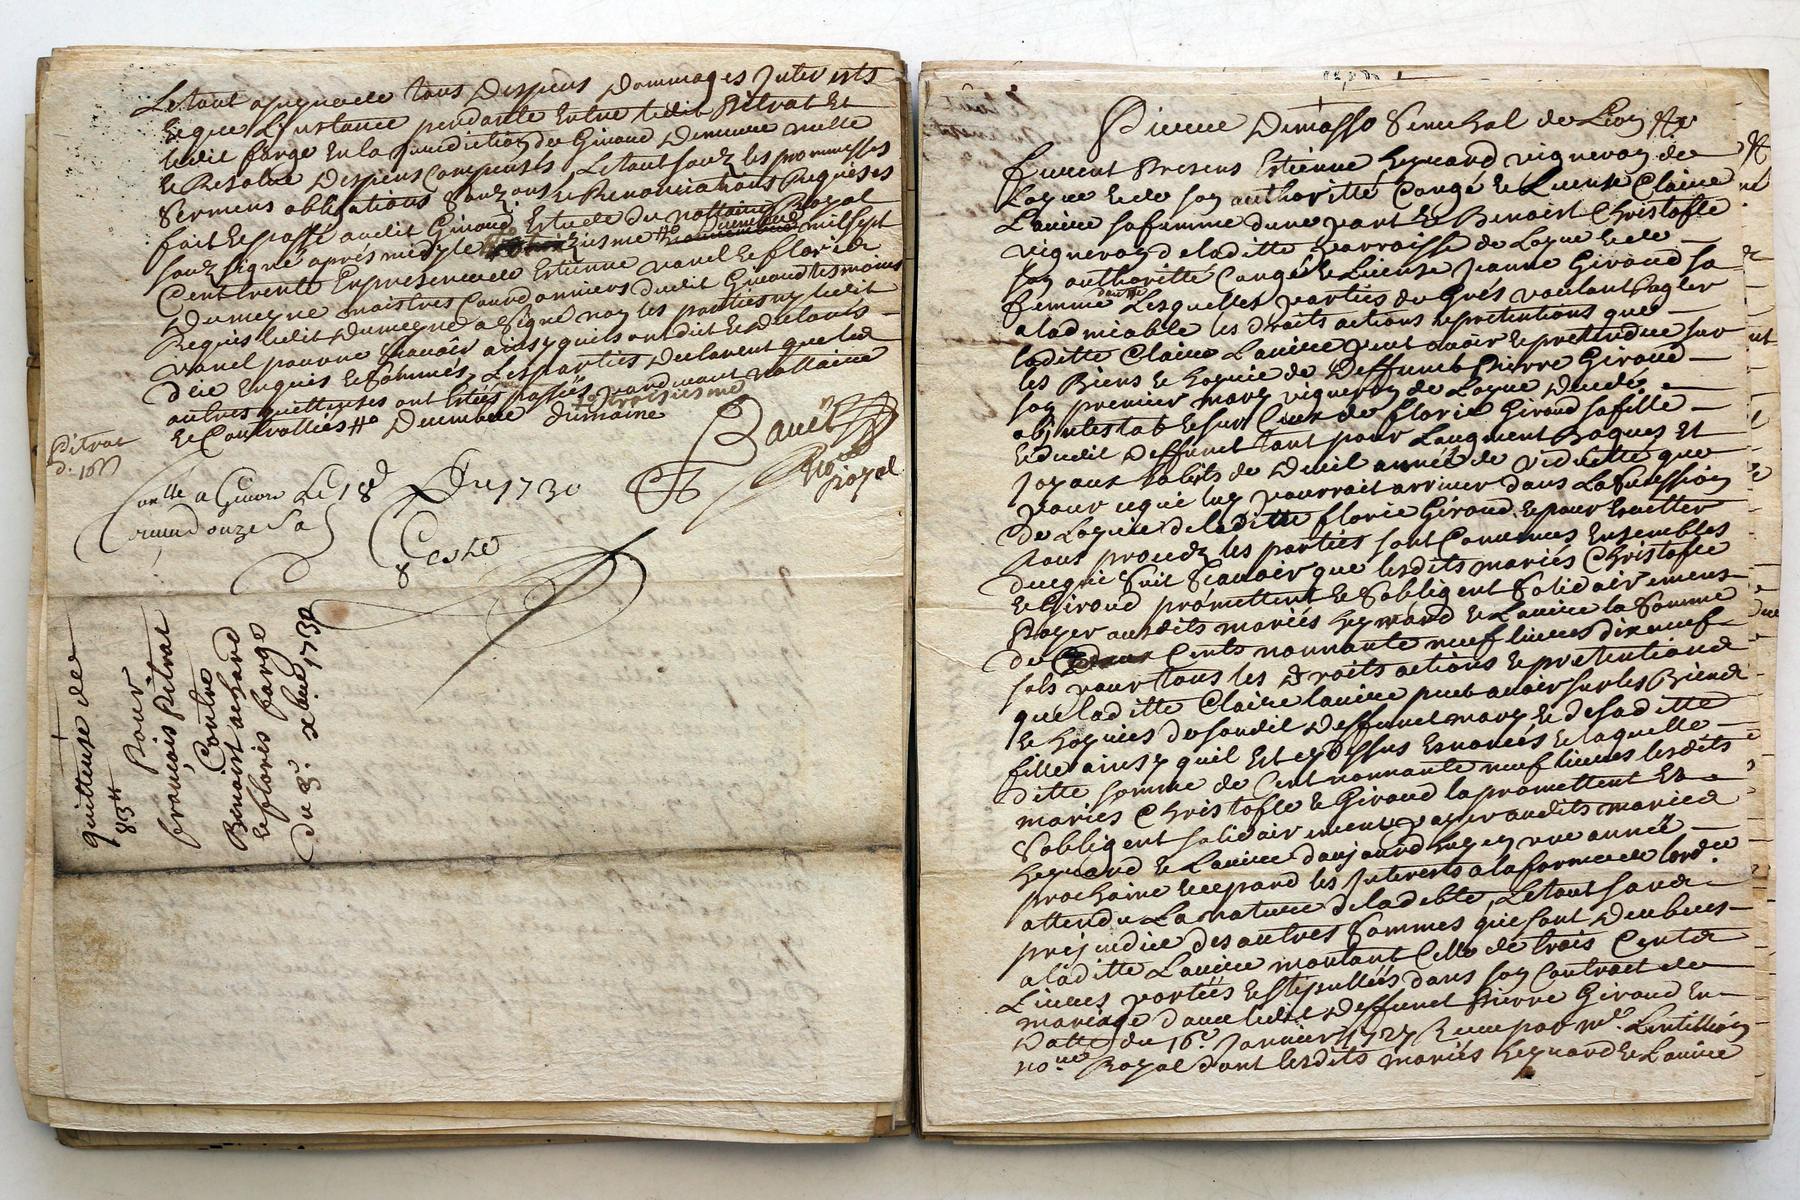 Le tout a peyne de tous Despens Dommages Interests
Et que L'instance pendante Entre ledit Pitrat Et
ledit farge En la Juridiction de Givord Demeure nulle
Et Resolue Despens Compensés, Le tout soubz les promesses
sermens obligations soubz ons Et Renonciations Requeses
fait Et passé audit Givord Estude du nottaire Royal
soubz signé aprés midy le troizieme Decembre mil sept
Cent trente En presence de Estienne vanel Et florie
Dumegne maistres Courdonniers dudit Givord tesmoins
Requis ledit Dumegne a signé non les parties ny ledit
vanel pour ne scavoir ainsy quils ont dit Et declaré
de ce Enquis Et sommés, Les parties declarent que les
autres quittences ont Estées passées pardevant nottaire
Et Controllées # Decembre
Le troisieme
Bauët
No.re royal
Pitrat
d. 16ˢ
Con.lle a Givors Le 18 Du 1730
Receu douze sols
Coste
quittense de
83ᵗᵗ
Pour
françois Pitrat
Contre
Benoist achard
Et floris farge
Du 3.ᵉ xbre 1730
Pierre Dimasso Senechal de Lion
furent Presens Estienne heynard vigneron de
Loyre Et de son authoritté Congé Et License Claire
Lavice sa femme d'une part Et Benoist Christofle
vigneron de laditte Parroisse de Loyre Et de
son authoritté Congé Et License Jeanne Giroud sa
femme d'autre Lesquelles parties de Grés voulant Regler
a lad miable les droits actions Et pretentions que
laditte Claire Lavice peut avoir Et pretendre sur
les Biens Et hoyrie de Deffunct Pierre Giroud
son premier mary vigneron de Loyre Decedé
ab intestat Et sur Ceux de florie Giroud sa fille
Et dudit Deffunct tant pour L'augment Bagues Et
Joyaux habits de Deuil année de viduitté que
pour ce qui luy pourrait arriver dans La succession
de Loyrie de laditte florie Giroud Et pour Eviter
tous procedz les parties sont Convenues Ensembles
de ce qui suit Scavoir que lesdits mariés Christofle
Et Giroud promettent Et s'obligent solidairement
Payer ausdits mariés heynard Et Lavice la somme
de Cents nonnante neuf livres dix neuf
sols pour tous les Droits actions Et pretentions
que laditte Claire Lavice peut avoir sur les Biens
Et hoyries de son dit Deffunct mary Et de sa ditte
fille ainsy quil Est cy dessus Enoncés Et laquelle
ditte somme de Cent nonnante neuf livres lesdits
mariés Christofle Et Giroud la promettent Et
s'obligent solidairement payer ausdits mariés
heynard Et Lavice d'aujourd'huy en une année
prochaine cependant les Interests a la forme de lord.ce
attendu La nature de la debte, Le tout sans
prejudice des autres sommes qui sont Deubues
a laditte Lavice montant Celle de trois Cents
Livres portées Et stipullées dans son Contract de
mariage d'avec ledit Deffunct Pierre Giroud En
Datte du 16.ᵉ Janvier 1727 Receu par m.ᵉ Lentillion
no.re Royal dont lesdits mariés heynard Et Lavice